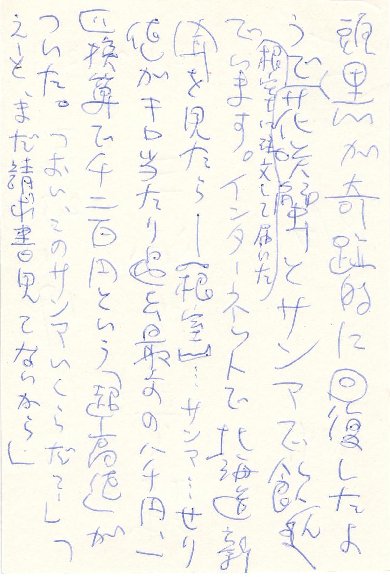 が奇跡的に回復したよ
うで花咲蟹とサンマで飲ん
(根室に注文して届いた)
でいます。インターネットで北海道新
聞を見たら―「根室」…サンマ…せり
値がキロ当たり過去最高の八千円、一
匹換算で千二百円という「超高値」が
ついた。「おい、このサンマいくらだ?」「
えーと、まだ請求書見てないから」